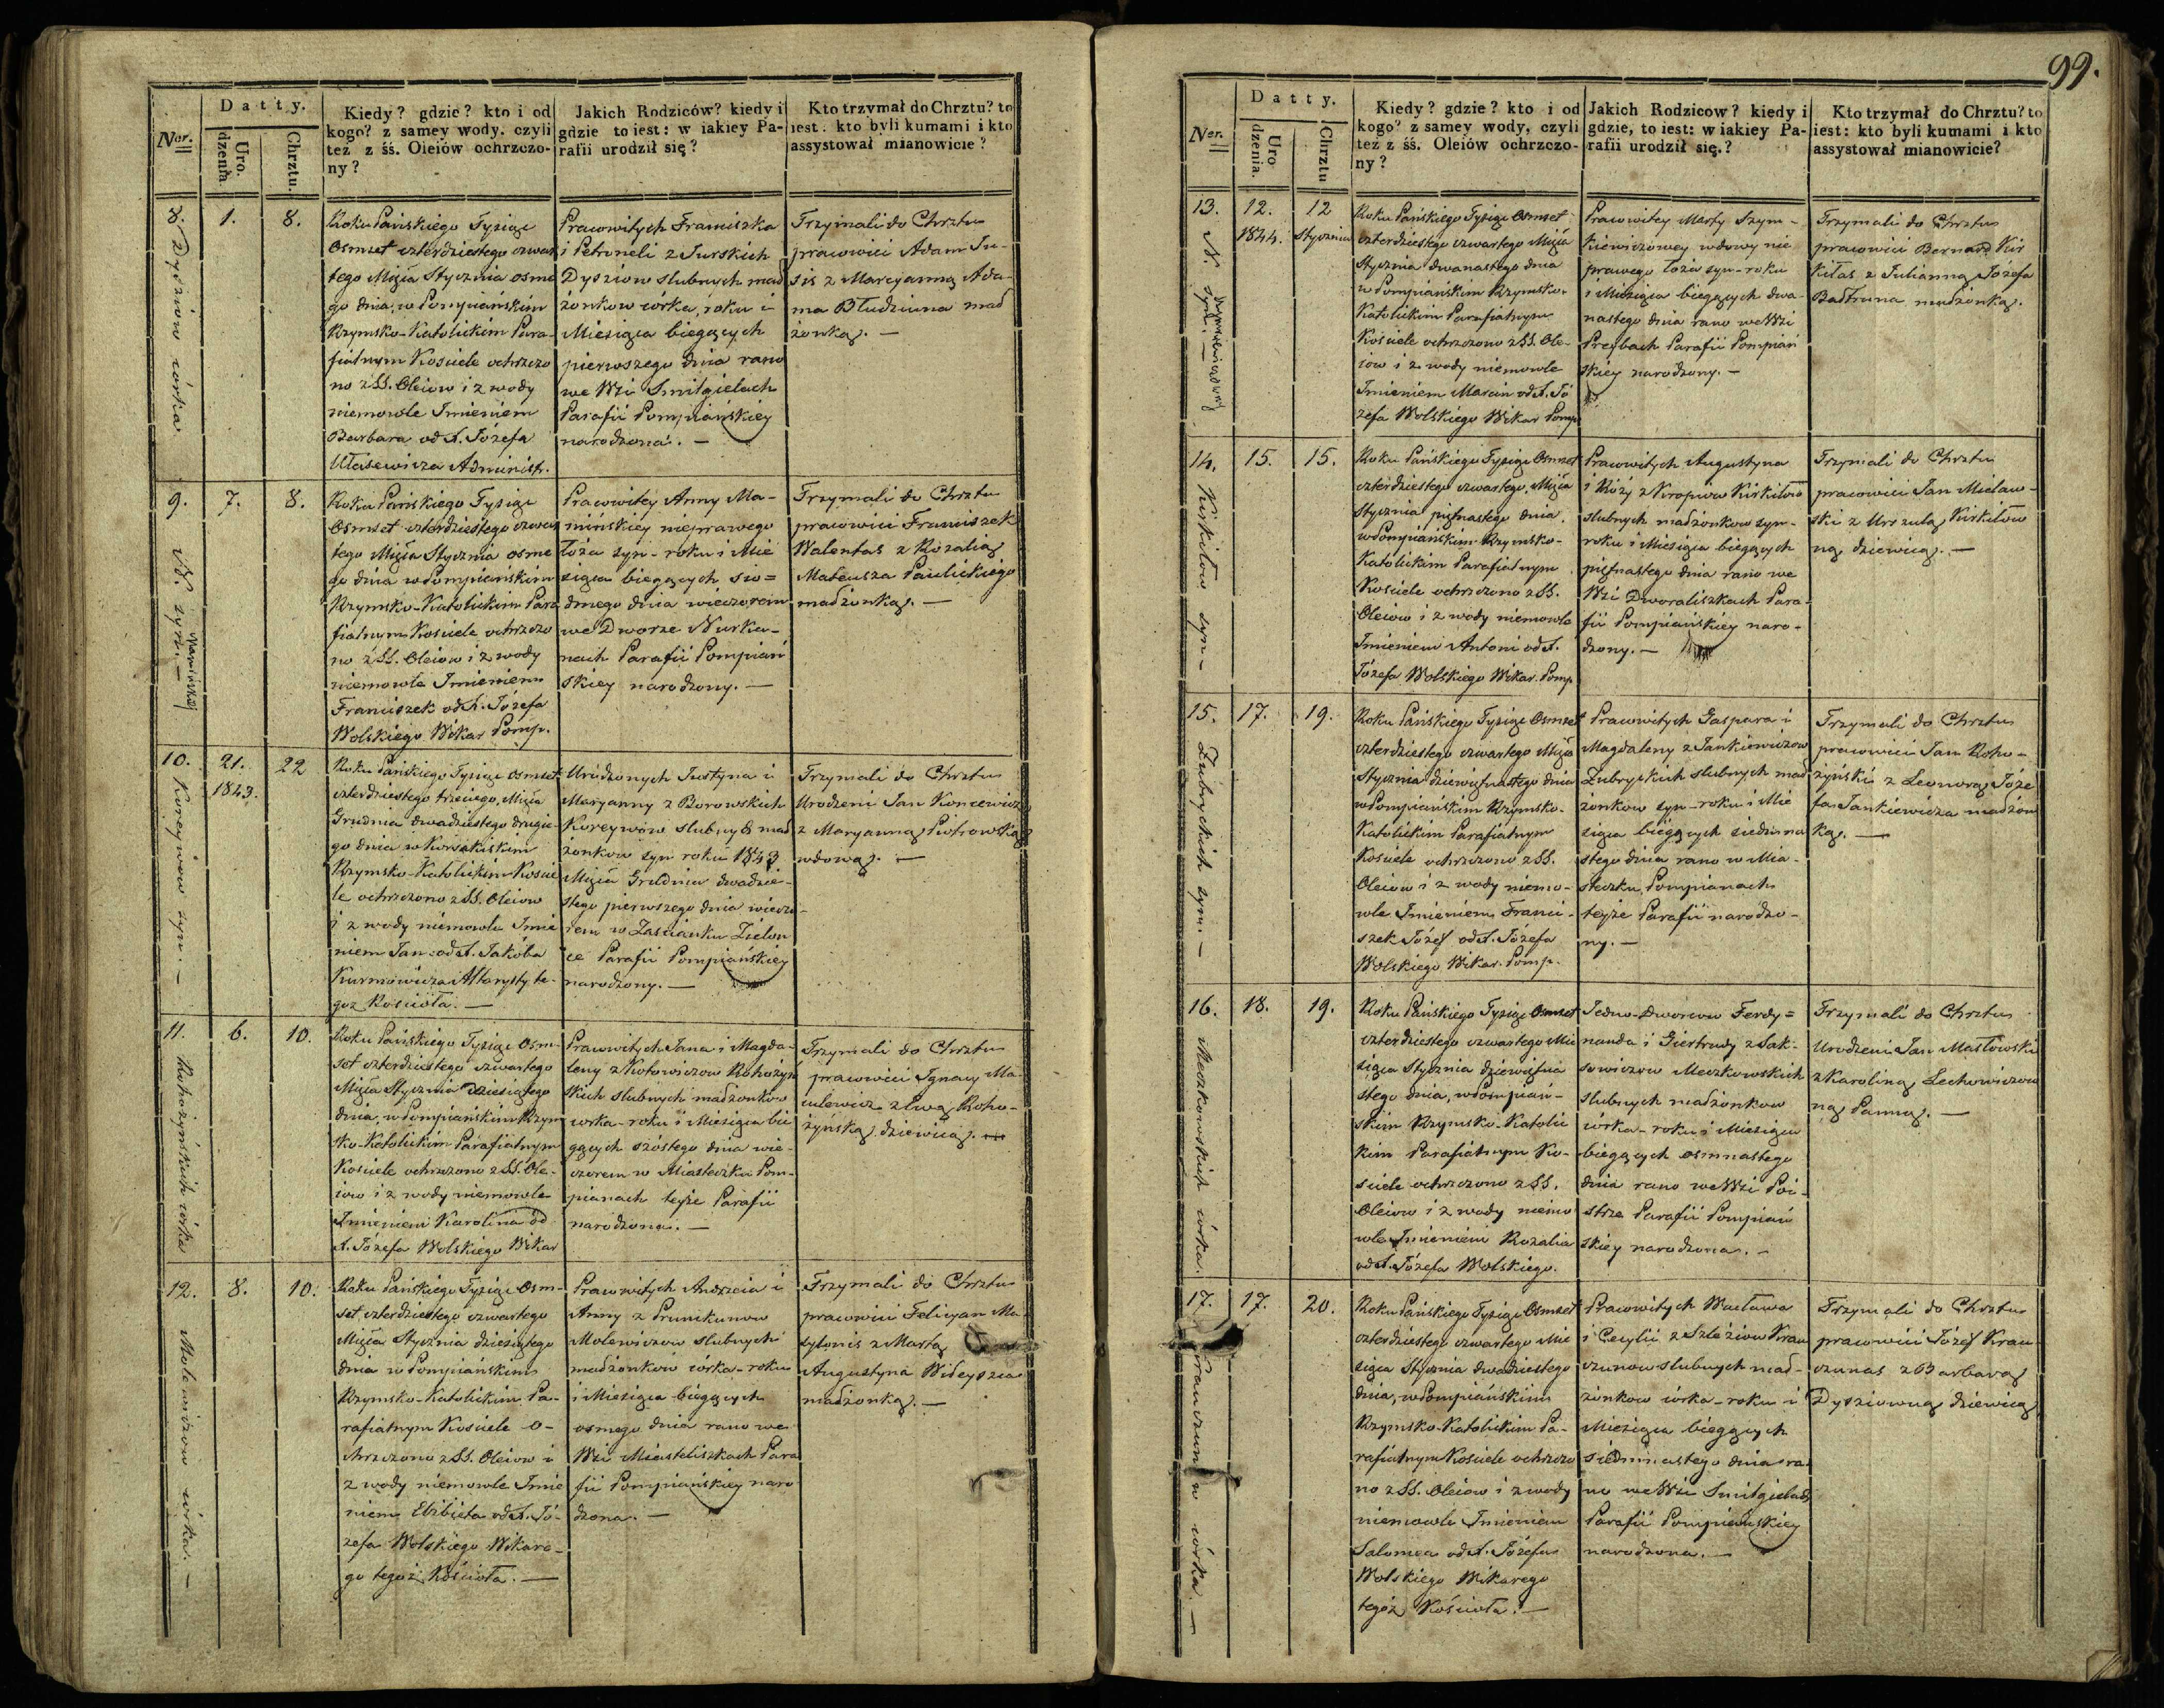 Ner.
Datty.
Uro.
dzenia
Chrztu.
Kiedy? gdzie? kto i od
kogo? z samey wody, czyli
też z śś. Oleiów ochrzczo-
ny?
Jakich Rodziców? kiedy i
gdzie to iest: w iakiey Pa-
rafii urodził się?
Kto trzymał do Chrztu? to
iest: kto byli kumami i kto
assystował mianowicie?
8.
Dysziow córka
1.
8.
Roku Pańskiego Tysiąc
Osmset czterdziestego czwar
tego Mięca Stycznia osme
go dnia, w Pompiańskim
Rzymsko-Katolickim Para-
fialnym Kosciele ochrzczo
no z SS. Oleiow i z wody
niemowle Imieniem
Barbara od X. Józefa
Ułasewicza Administr.
Pracowitych Franciszka
i Petroneli z Jurskich
Dysziow slubnych mał
żonkow córka, roku i
Miesiąca biegących
pierwszego dnia rano
we Wsi Smilgielach
Parafii Pompiańskiey
narodzona. —
Trzymali do Chrztu
pracowici Adam Ju-
sis z Maryanną Ada-
ma Błudziuna mał
żonką. —
9.
N. Mamińskiey syn. —
7.
8.
Roku Pańskiego Tysiąc
Osmset czterdziestego czwar
tego Mięca Stycznia osme
go dnia w Pompiańskim
Rzymsko-Katolickim Para
fialnym Kosciele ochrzczo
no z SS. Oleiow i z wody
niemowle Imieniem
Franciszek od X. Józefa
Wolskiego Wikar. Pomp.
Pracowitey Anny Ma-
mińskiey nieprawego
łoża syn - roku i Mie
siąca biegących sio=
dmego dnia wieczorem
we Dworze Nurka-
nach Parafii Pompiań
skiey narodzony. —
Trzymali do Chrztu
pracowici Franciszek
Walentas z Rozalią
Mateusza Paulickiego
małżonką. —
10.
Koreywow syn. —
21.
1843.
22
Roku Pańskiego Tysiąc Osmset
czterdziestego trzeciego, Mięca
Grudnia dwadziestego drugie-
go dnia w
Rzymsko-Katolickim Koscie
le ochrzczono z SS. Oleiow
i z wody niemowle Imie
niem Jan od X. Jakóba
Kurmowicza Altarysty te-
goz Kosciola. —
Urodzonych Justyna i
Maryanny z Borowskich
Koreywów slubnych mał
żonkow syn roku 1843
Mięca Grudnia dwadzie-
stego pierwszego dnia wieczo-
rem w Zascianku Zielon
ce Parafii Pompiańskiey
narodzony. —
Trzymali do Chrztu
Urodzeni Jan Koncewicz
z Maryanną Piotrowską
wdową. —
11.
Rohożyńskich córka
6.
10.
Roku Pańskiego Tysiąc Osm-
set czterdziestego czwartego
Mięca Stycznia dziesiątego
dnia, w Pompiańskim Rzym
sko-Katolickim Parafialnym
Kosciele ochrzczono z SS. Ole-
iow i z wody niemowle
Imieniem Karolina od
X. Józefa Wolskiego Wikar
Pracowitych Jana i Magda-
leny z Kotowiczow Rohożyń
skich slubnych małżonkow
córka - roku i Miesiąca bie
gących szóstego dnia wie-
czorem w Miasteczku Pom-
pianach teyże Parafii
narodzona. —
Trzymali do Chrztu
pracowici Ignacy Ma-
culewicz z Ewą Roho-
żynską dziewicą. —
12.
Molewiczow córka. —
8.
10.
Roku Pańskiego Tysiąc Osm-
set czterdziestego czwartego
Mięca Stycznia dziesiątego
dnia w Pompiańskim
Rzymsko-Katolickim Pa-
rafialnym Kosciele o-
chrzczono z SS. Oleiow i
z wody niemowle Imie
niem Elżbieta od X. Jó-
zefa Wolskiego Wikare-
go tegoż Kościoła. —
Pracowitych Andrzeia i
Anny z Prunikunow
Molewiczow slubnych
małżonkow córka - roku
i Miesiąca biegących
osmego dnia rano we
Wsi Miasteliszkach Para
fii Pompiańskiey naro
dzona. —
Trzymali do Chrztu
pracowici Felicyan Ma-
tylonis z Martą
Augustyna Wideyszia
małżonką. —
99.
Ner.
Datty.
Uro
dzenia.
Chrztu
Kiedy? gdzie? kto i od
kogo? z samey wody, czyli
też z śś. Oleiów ochrzczo-
ny?
Jakich Rodzicow? kiedy i
gdzie, to iest: w iakiey Pa-
rafii urodził się.?
Kto trzymał do Chrztu? to
iest: kto byli kumami i kto
assystował mianowicie?
13.
N. syn. —
12.
1844.
12
Stycznia
Roku Pańskiego Tysiąc Osmset
czterdziestego czwartego Mięca
Stycznia dwanastego dnia
w Pompiańskim Rzymsko-
Katolickim Parafialnym
Kosciele ochrzczono z SS. Ole-
iow i z wody niemowle
Imieniem Marcin od X. Jó
zefa Wolskiego Wikar Pomp
Pracowitey Marty Szym-
kiewiczowey wdowy nie
prawego łoża syn - roku
i Miesiąca biegących dwa-
nastego dnia rano we Wsi
Preybach Parafii Pompiań
skiey narodzony. —
Trzymali do Chrztu
pracowici Bernard Kir
kiłas z Julianną Józefa
Bałtruna małżonką.
14.
Kirkiłow syn —
15.
15.
Roku Pańskiego Tysiąc Osmset
czterdziestego czwartego, Mięca
Stycznia piętnastego dnia,
w Pompiańskim Rzymsko-
Katolickim Parafialnym
Kosciele ochrzczono z SS.
Oleiow i z wody niemowle
Imieniem Antoni od X.
Józefa Wolskiego Wikar. Pomp.
Pracowitych Augustyna
i Róży z Kropiow Kirkiłow
slubnych małżonkow syn-
roku i Miesiąca biegących
piętnastego dnia rano we
Wsi Dworaliszkach Para-
fii Pompiańskiey naro-
dzony. —
Trzymali do Chrztu
pracowici Jan Mielaw-
ski z Urszulą Kirkiłow
ną dziewicą. —
15.
Zubryckich syn. —
17.
19.
Roku Pańskiego Tysiąc Osmset
czterdziestego czwartego Mięca
Stycznia dziewiętnastego dnia
w Pompiańskim Rzymsko-
Katolickim Parafialnym
Kosciele ochrzczono z SS.
Oleiow i z wody niemo-
wle Imieniem Franci-
szek Józef od X. Józefa
Wolskiego Wikar. Pomp.
Pracowitych Gaspara i
Magdaleny z Jankiewiczow
Zubryckich slubnych mał
żonkow syn - roku i Mie
siąca biegących siedmna
stego dnia rano w Mia-
steczku Pompianach
teyże Parafii narodzo-
ny. —
Trzymali do Chrztu
pracowici Jan Roho-
żyński z Leonorą Józe
fa Jankiewicza małżon
ką. —
16.
Meczkowskich córka.
18.
19.
Roku Pańskiego Tysiąc Osmset
czterdziestego czwartego Mie
siąca Stycznia dziewiętna
stego dnia, w Pompiań-
skim Rzymsko-Katolic
kim Parafialnym Ko-
sciele ochrzczono z SS.
Oleiow i z wody niemo
wle Imieniem Rozalia
od X. Józefa Wolskiego.
Jedno-Dworcow Ferdy=
nanda i Giertrudy z Sak-
sowiczow Meczkowskich
slubnych małżonkow
córka - roku i Miesiąca
biegących osmnastego
dnia rano we Wsi Poi-
strze Parafii Pompiań
skiey narodzona. —
Trzymali do Chrztu
Urodzeni Jan Masłowski
z Karoliną Lechowiczow
ną Panną. —
17.
Krauczunow córka —
17.
20.
Roku Pańskiego Tysiąc Osmset
czterdziestego czwartego Mie
siąca Stycznia dwadziestego
dnia, w Pompiańskim
Rzymsko-Katolickim Pa-
rafialnym Kosciele ochrzczo
no z SS. Oleiow i z wody
niemowle Imieniem
Salomea od X. Józefa
Wolskiego Wikarego
tegoż Kościoła. —
Pracowitych Wacława
i Cecylii z Szleźiow Krau
czunow slubnych mał-
żonkow córka - roku i
Miesiąca biegących
siedmnastego dnia ra
no we Wsi Smilgielach
Parafii Pompiańskiey
narodzona. —
Trzymali do Chrztu
pracowici Józef Krau
czunas z Barbarą
Dysziowną dziewicą